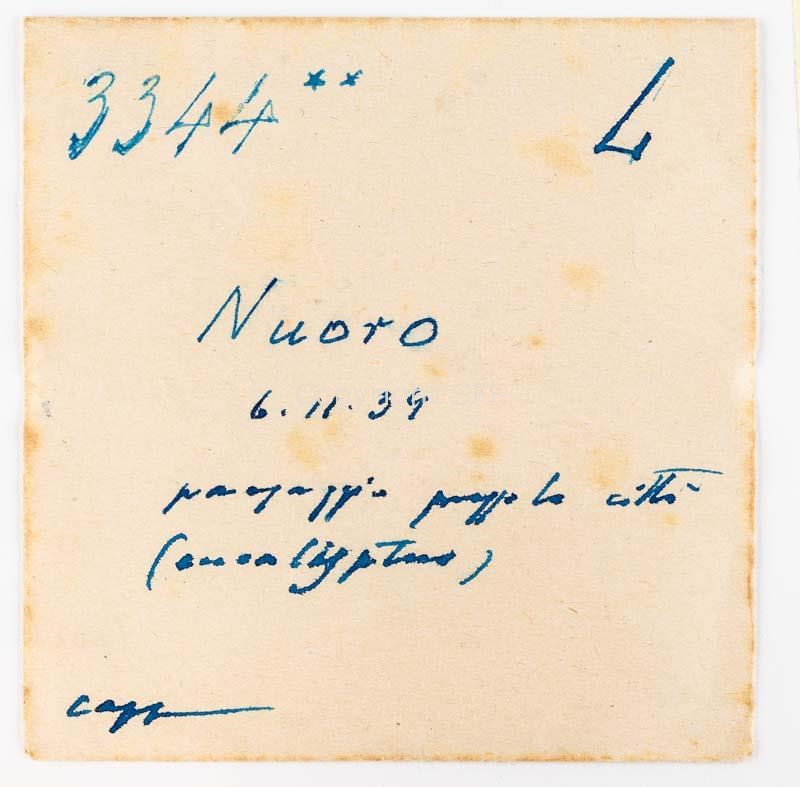 3344** L
Nuoro
6.11.39
paesaggio presso la città
(eucalyptus)